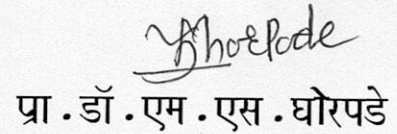 Ghorpade
प्रा . डॉ . एम . एस . घोरपडे